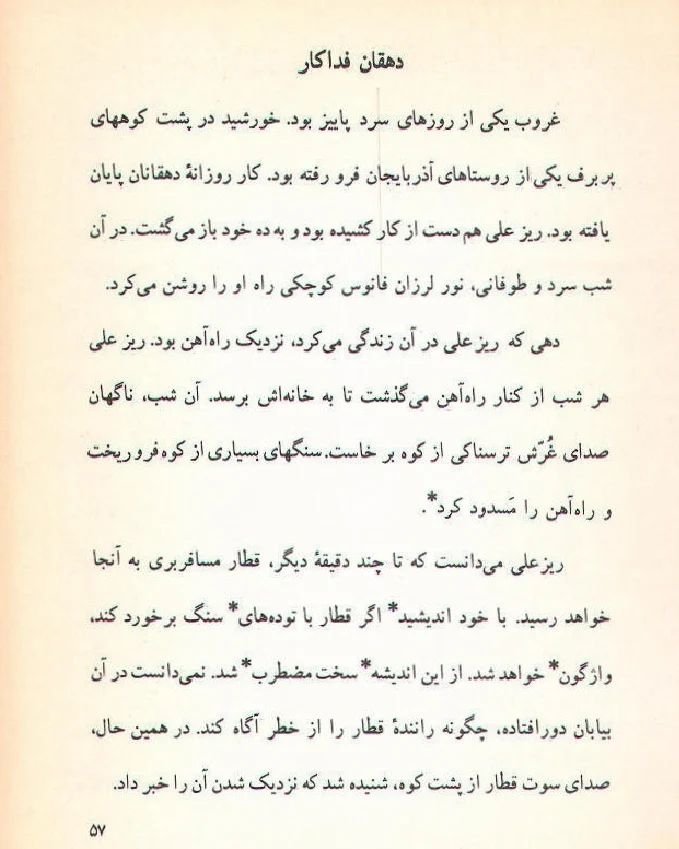 دهقان فداکار
غروب یکی از روزهای سرد پاییز بود. خورشید در پشت کوههای
پر برف یکی از روستاهای آذربایجان فرو رفته بود. کار روزانهٔ دهقانان پایان
یافته بود. ریز علی هم دست از کار کشیده بود و به ده خود باز می‌گشت. در آن
شب سرد و طوفانی، نور لرزان فانوس کوچکی راه او را روشن می‌کرد.
دهی که ریز علی در آن زندگی می‌کرد، نزدیک راه‌آهن بود. ریز علی
هر شب از کنار راه‌آهن می‌گذشت تا به خانه‌اش برسد. آن شب، ناگهان
صدای غُرّش ترسناکی از کوه بر خاست. سنگهای بسیاری از کوه فرو ریخت
و راه‌آهن را مَسدود کرد*.
ریز علی می‌دانست که تا چند دقیقهٔ دیگر، قطار مسافربری به آنجا
خواهد رسید. با خود اندیشید* اگر قطار با توده‌های* سنگ برخورد کند،
واژگون* خواهد شد. از این اندیشه* سخت مضطرب* شد. نمی‌دانست در آن
بیابان دورافتاده، چگونه رانندهٔ قطار را از خطر آگاه کند. در همین حال،
صدای سوت قطار از پشت کوه، شنیده شد که نزدیک شدن آن را خبر داد.
۵۷